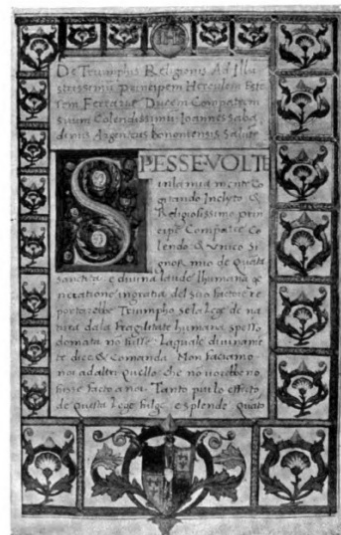 De Triumphis Religionis Ad Illu
strissimū principem Herculem Esten
sem Ferrariæ Ducem Compatrem
suum Colendissimū Ioannes Saba
dinus Argenteus bononiensis Salute
SPESSE VOLTE
ne la mia mente Co
gitando Inclyto &
Religiosissimo prin
cipe Compatre Co
lendo & unico Si
gnor mio de quāta
sanctita e divina laude lhumana ge
neratione ingrata del suo factore re
portarebbe Triumpho se la Lege de na
tura dala fragilitate humana spesso
domata nō fusse. Laquale divinamē
te dice & Comanda. Non faciamo
noi ad altri quello che nō vorebbeno
fusse facto a noi. Tanto piu lo effecto
de questa Lege fulge e splende quāto